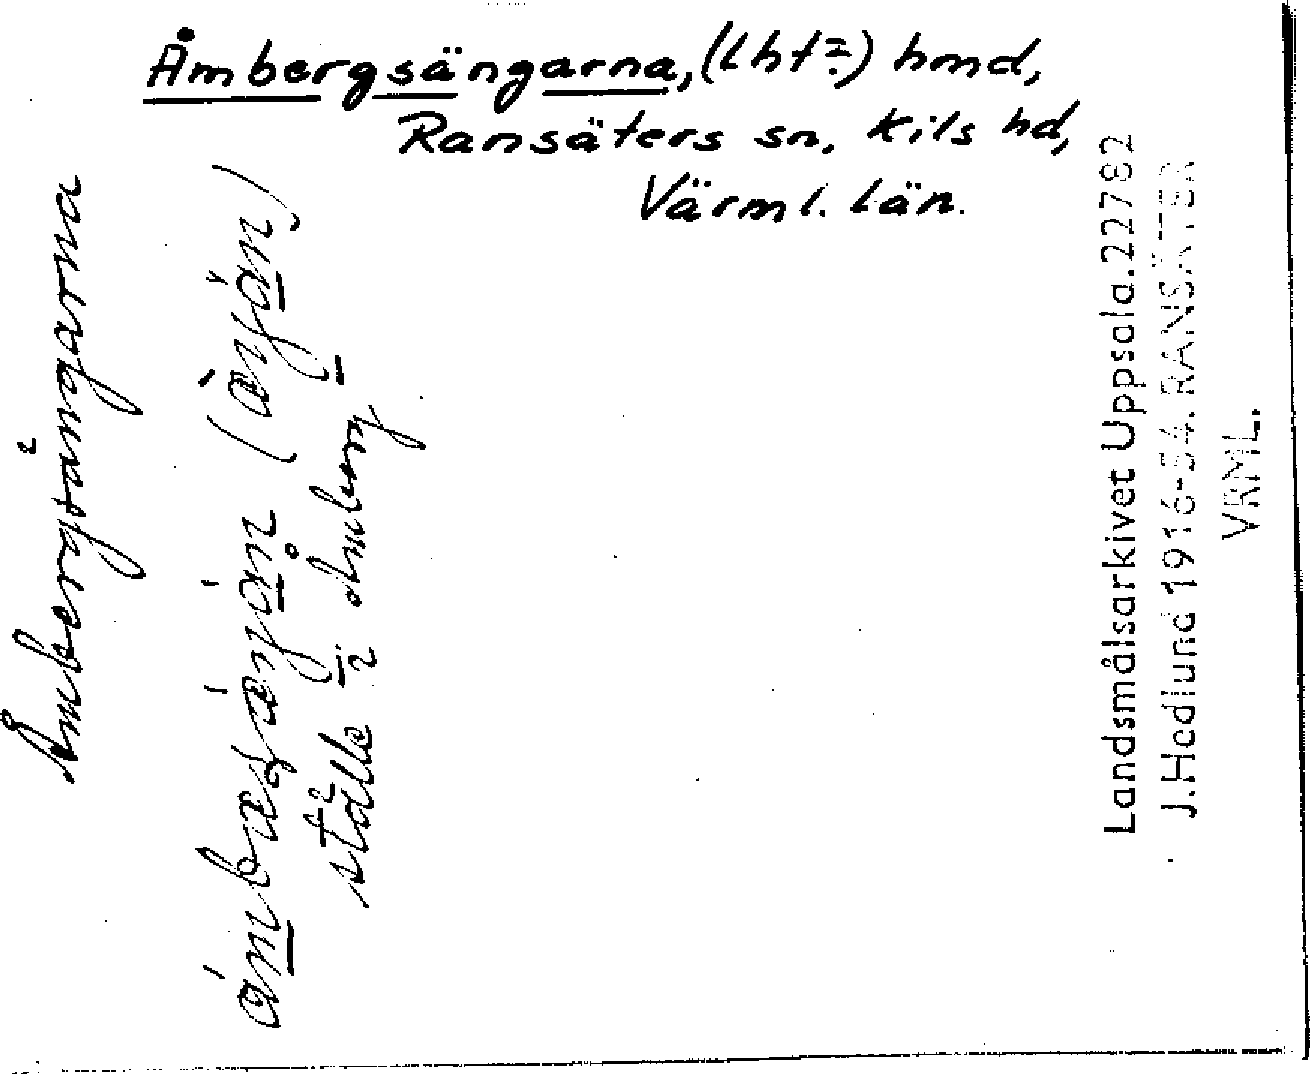 Åmbergsängarna, (Lht?) hmd,
Ransäters sn, Kils hd,
Värml. län.
Åmbergsängarna
ställe i Åmberg
Landsmålsarkivet Uppsala. 22782
J. Hedlund 1916-54. RANSÄTER
VRML.